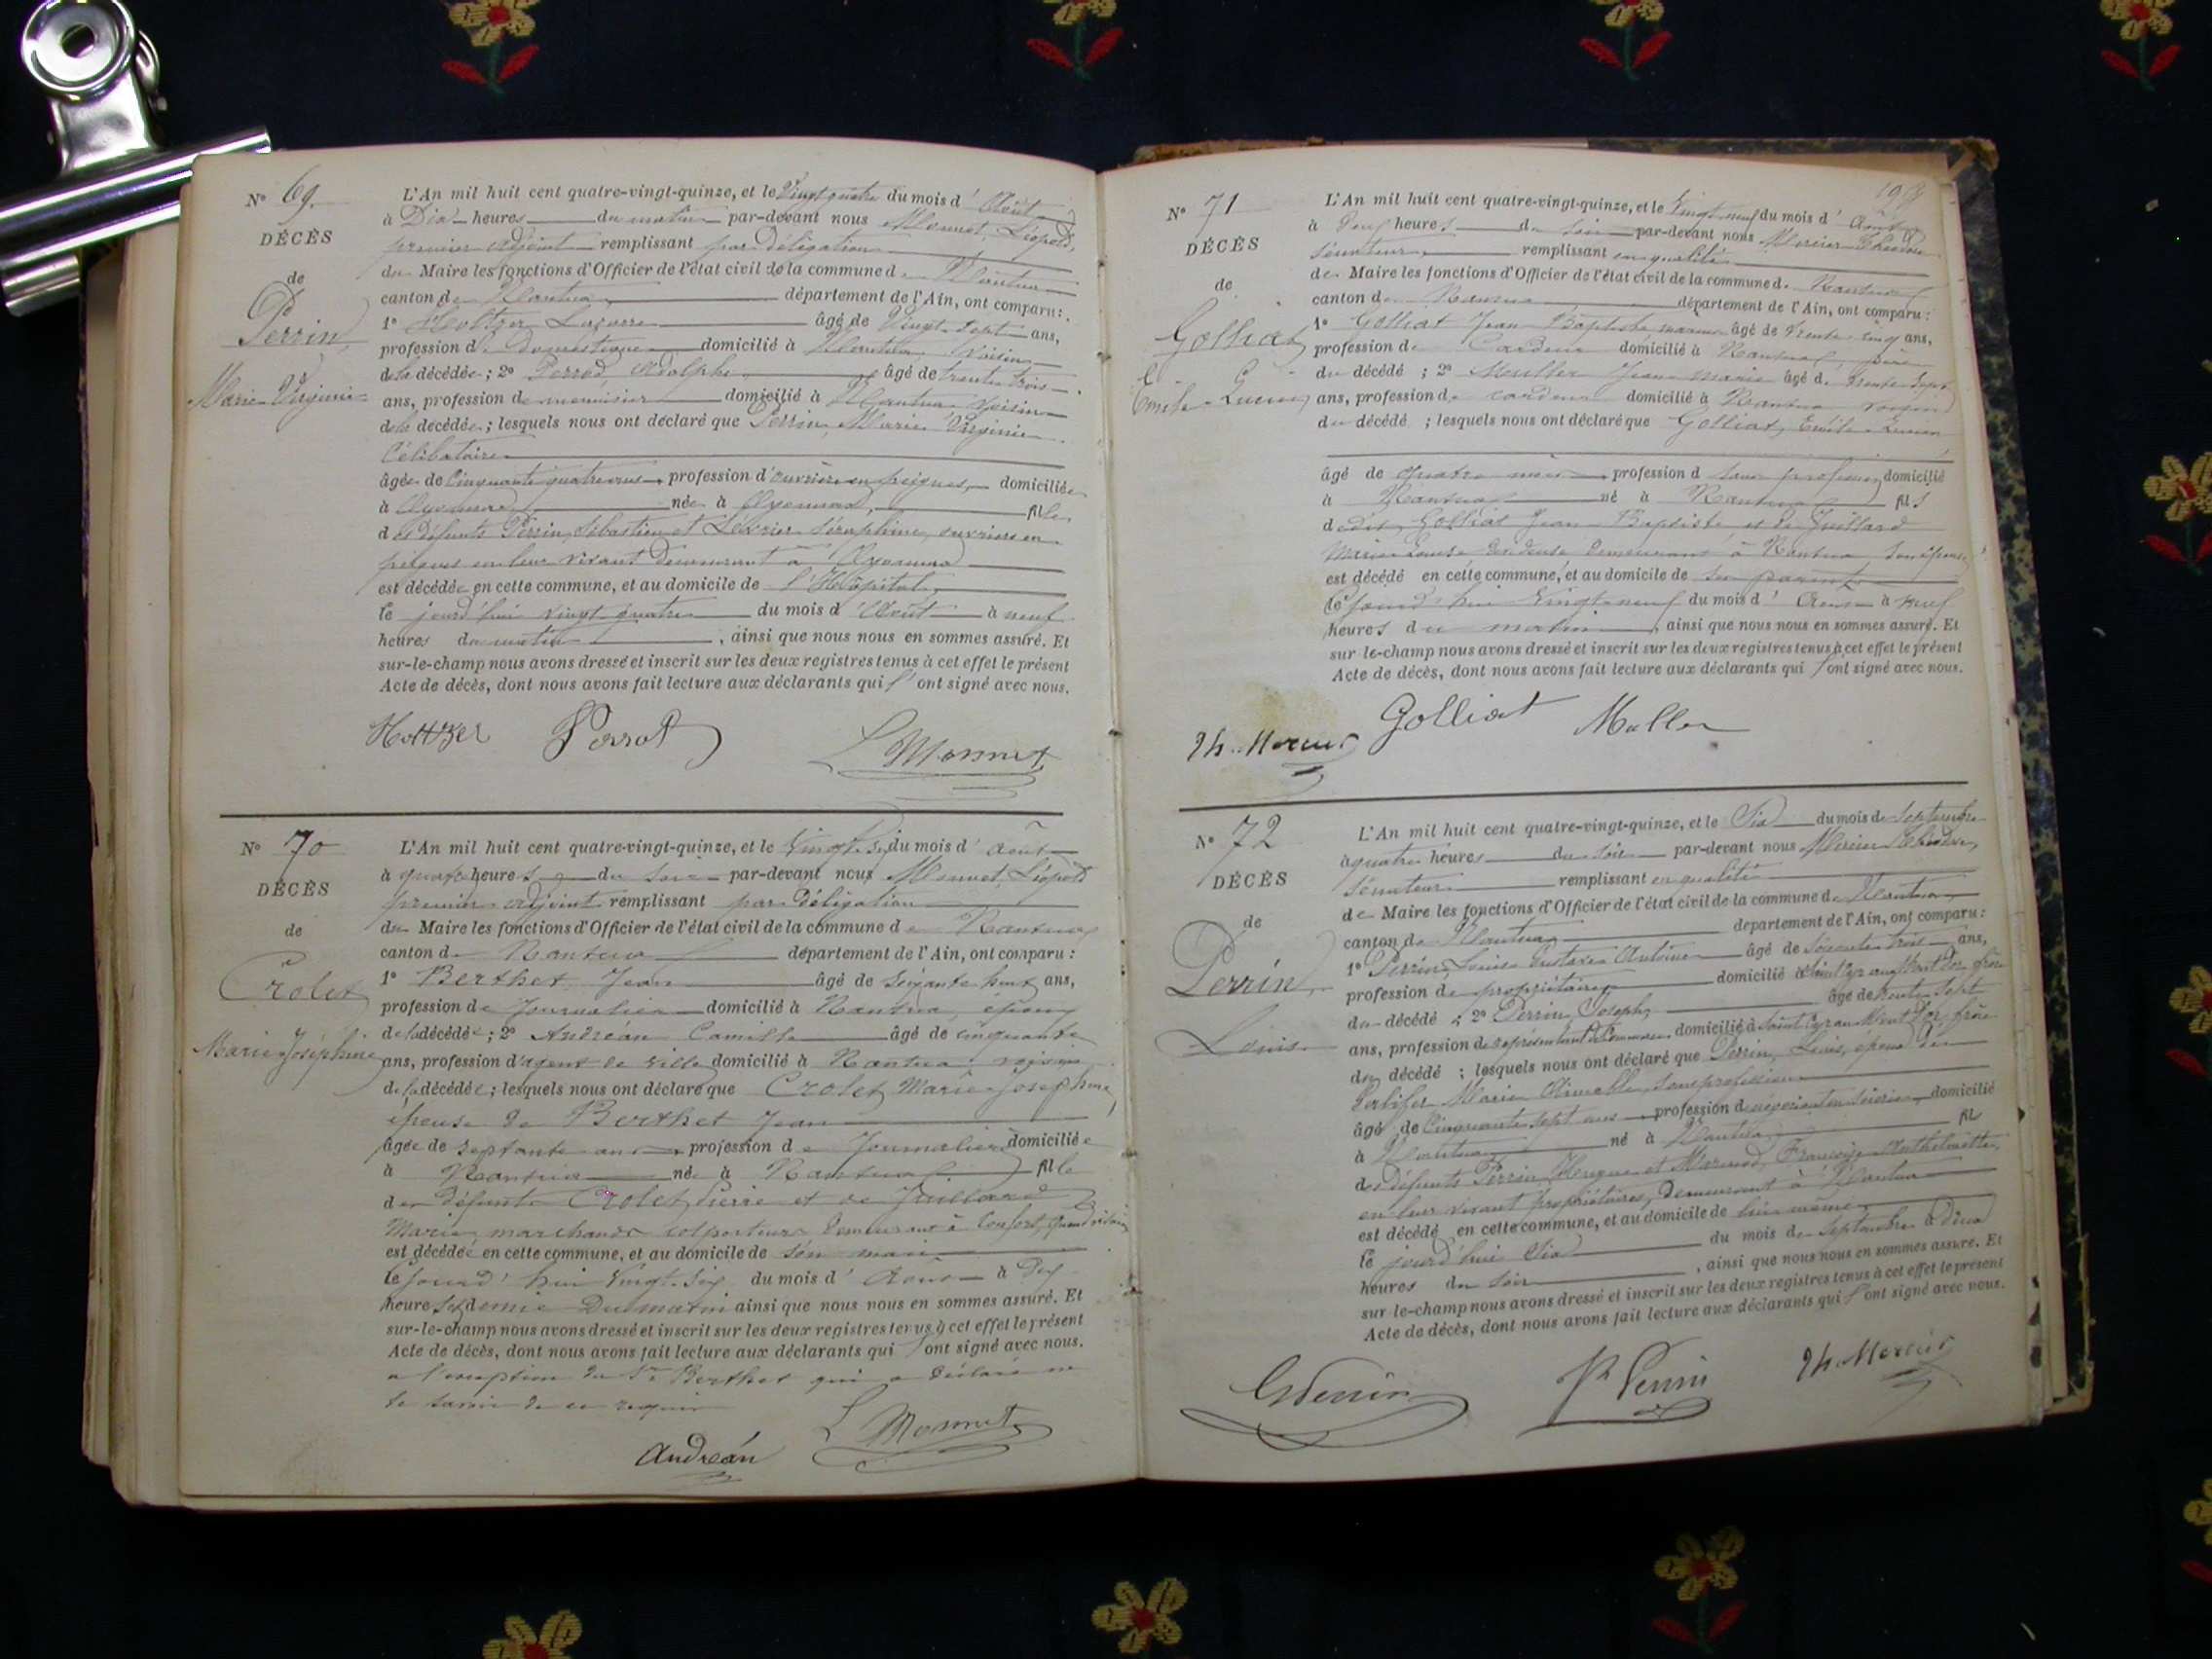 Nº 69.
DÉCÈS
de
Perrin
Marie Virginie
L'An mil huit cent quatre-vingt-quinze, et le Vingt quatre du mois d' Août
à Dix heures du matin par-devant nous Monnet, Léopold,
premier adjoint remplissant par délégation
du Maire les fonctions d'Officier de l'état civil de la commune de Nantua
canton de Nantua département de l'Ain, ont comparu:
1º Holtzer Lazare âgé de Vingt-sept ans,
profession de domestique domicilié à Nantua, voisin
de la décédée; 2º Perrod, Adolphe âgé de trente trois
ans, profession de menuisier domicilié à Nantua voisin
de la décédée; lesquels nous ont déclaré que Perrin, Marie Virginie
Célibataire
âgée de Cinquante quatre ans, profession d'ouvrière en peignes, domiciliée
à Oyonnax née à Oyonnax, fille
des défunts Perrin, Sébastien et Séraphine, ouvriers en
peignes en leur vivant demeurant à Oyonnax
est décédée en cette commune, et au domicile de l'Hôpital
le jourd'hui vingt quatre du mois d'Août à neuf
heures du matin, ainsi que nous nous en sommes assuré. Et
sur-le-champ nous avons dressé et inscrit sur les deux registres tenus à cet effet le présent
Acte de décès, dont nous avons fait lecture aux déclarants qui l' ont signé avec nous.
Holtzer Perrod L Monnet
Nº 70
DÉCÈS
de
Crolet
Marie Joséphine
L'An mil huit cent quatre-vingt-quinze, et le Vingt-Six du mois d' Août
à quatre heures du soir par-devant nous Monnet, Léopold
premier adjoint remplissant par délégation
du Maire les fonctions d'Officier de l'état civil de la commune de Nantua
canton de Nantua département de l'Ain, ont comparu:
1º Berthet Jean âgé de soixante huit ans,
profession de Journalier domicilié à Nantua, époux
de la décédée; 2º Andréan Camille âgé de cinquante
ans, profession d'agent de ville domicilié à Nantua voisin
de la décédée; lesquels nous ont déclaré que Crolet Marie Joséphine
épouse de Berthet Jean
âgée de septante ans profession de Journalière domiciliée
à Nantua née à Nantua fille
des défunts Crolet Pierre et de Juillard
Marie, marchands colporteurs demeurant à
est décédée en cette commune, et au domicile de son mari
le jourd'hui Vingt-Six du mois d' Août à dix
heures et demie du matin ainsi que nous nous en sommes assuré. Et
sur-le-champ nous avons dressé et inscrit sur les deux registres tenus à cet effet le présent
Acte de décès, dont nous avons fait lecture aux déclarants qui l'ont signé avec nous.
a l'exception du Sr Berthet qui a déclaré ne
le savoir de ce requis
Andréan L Monnet
Nº 71
DÉCÈS
de
Golliat
Emile Lucien
L'An mil huit cent quatre-vingt-quinze, et le Vingt-neuf du mois d' Août
à deux heures du soir par-devant nous Mercier Théodore
sénateur remplissant en qualité
de Maire les fonctions d'Officier de l'état civil de la commune de Nantua
canton de Nantua département de l'Ain, ont comparu:
1º Golliat Jean Baptiste âgé de trente cinq ans,
profession de Cardeur domicilié à Nantua père
du décédé; 2º Muller Jean Marie âgé de trente sept
ans, profession de cardeur domicilié à Nantua voisin
du décédé; lesquels nous ont déclaré que Golliat, Emile Lucien
âgé de quatre mois profession d sans profession domicilié
à Nantua né à Nantua fils
dedit Golliat Jean Baptiste et de Juillard
Marie Louise demeurant à Nantua son épouse
est décédé en cette commune, et au domicile de ses parents
le jourd'hui Vingt-neuf du mois d' Août à neuf
heures du matin, ainsi que nous nous en sommes assuré. Et
sur-le-champ nous avons dressé et inscrit sur les deux registres tenus à cet effet le présent
Acte de décès, dont nous avons fait lecture aux déclarants qui l'ont signé avec nous.
Th. Mercier Golliat Muller
Nº 72
DÉCÈS
de
Perrin
Louis
L'An mil huit cent quatre-vingt-quinze, et le Six du mois de Septembre
à quatre heures du soir par-devant nous Mercier Théodore,
sénateur remplissant en qualité
de Maire les fonctions d'Officier de l'état civil de la commune de Nantua
canton de Nantua département de l'Ain, ont comparu:
1º Perrin, Louis Gustave Antoine âgé de soixante trois ans,
profession de propriétaire domicilié à Saint Cyr au Mont d'or frère
du décédé; 2º Perrin, Joseph, âgé de trente sept
ans, profession de représentant de Commerce domicilié à Saint Cyr au Mont d'or, frère
du décédé; lesquels nous ont déclaré que Perrin, Louis, époux de
Marie sans profession
âgé de Cinquante sept ans profession de négociant en soieries, domicilié
à Nantua né à Nantua fils
des défunts Perrin, Hugues et Françoise Anthelmette,
en leur vivant propriétaires, demeurant à Nantua
est décédé en cette commune, et au domicile de lui même
le jourd'hui Six du mois de septembre à deux
heures du soir, ainsi que nous nous en sommes assuré. Et
sur-le-champ nous avons dressé et inscrit sur les deux registres tenus à cet effet le présent
Acte de décès, dont nous avons fait lecture aux déclarants qui l'ont signé avec nous.
GPerrin Jh Perrin Th. Mercier